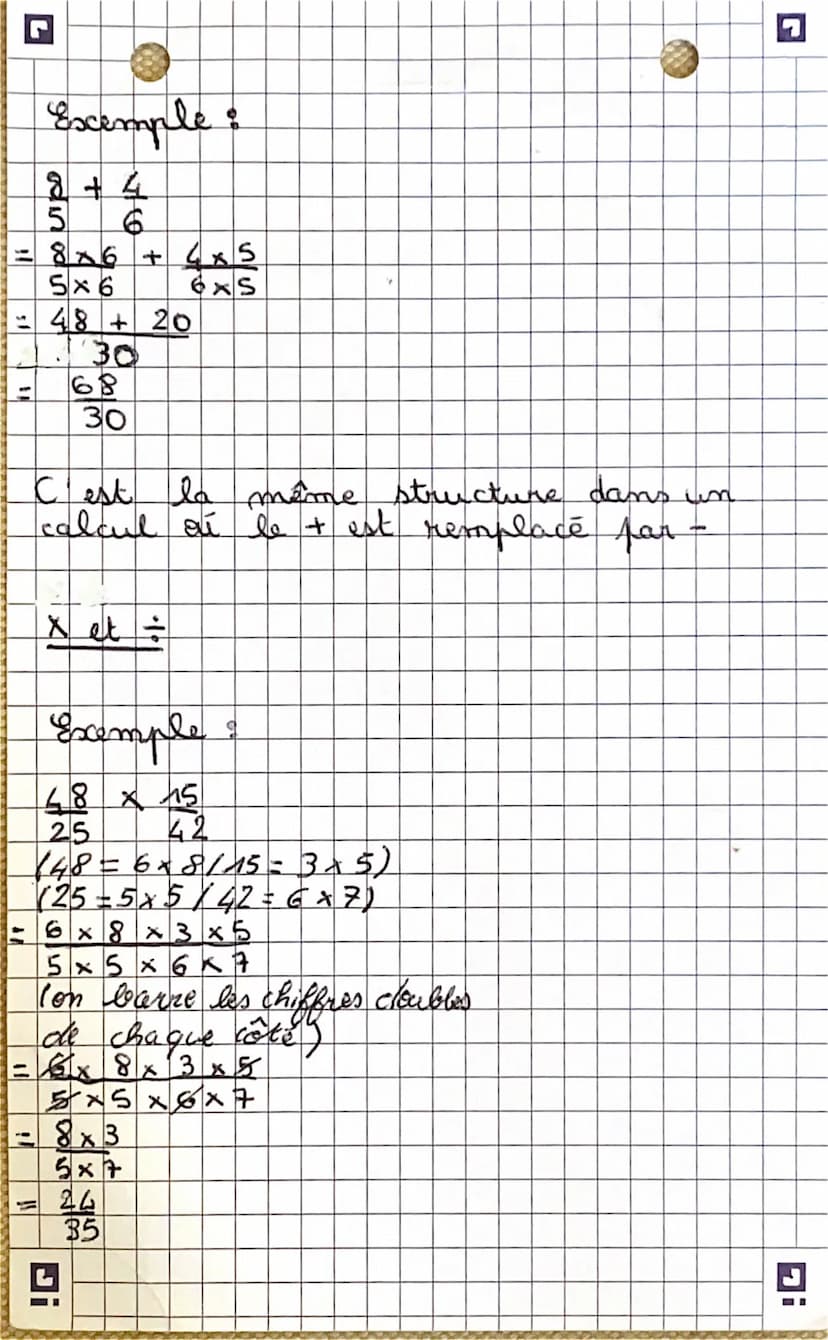 Exemple :
8/5 + 4/6
= 8×6/5×6 + 4×5/6×5
= 48 + 20/30
= 68/30
C'est la même structure dans un
calcul où le + est remplacé par -
X et ÷
Exemple :
48/25 × 15/42
(48 = 6×8/15 = 3×5)
(25 = 5×5/42 = 6×7)
= 6 × 8 × 3 × 5/5 × 5 × 6 × 7
(on barre les chiffres doubles
de chaque côté)
= 6 × 8 × 3 × 5/5 × 5 × 6 × 7
= 8×3/5×7
= 24/35